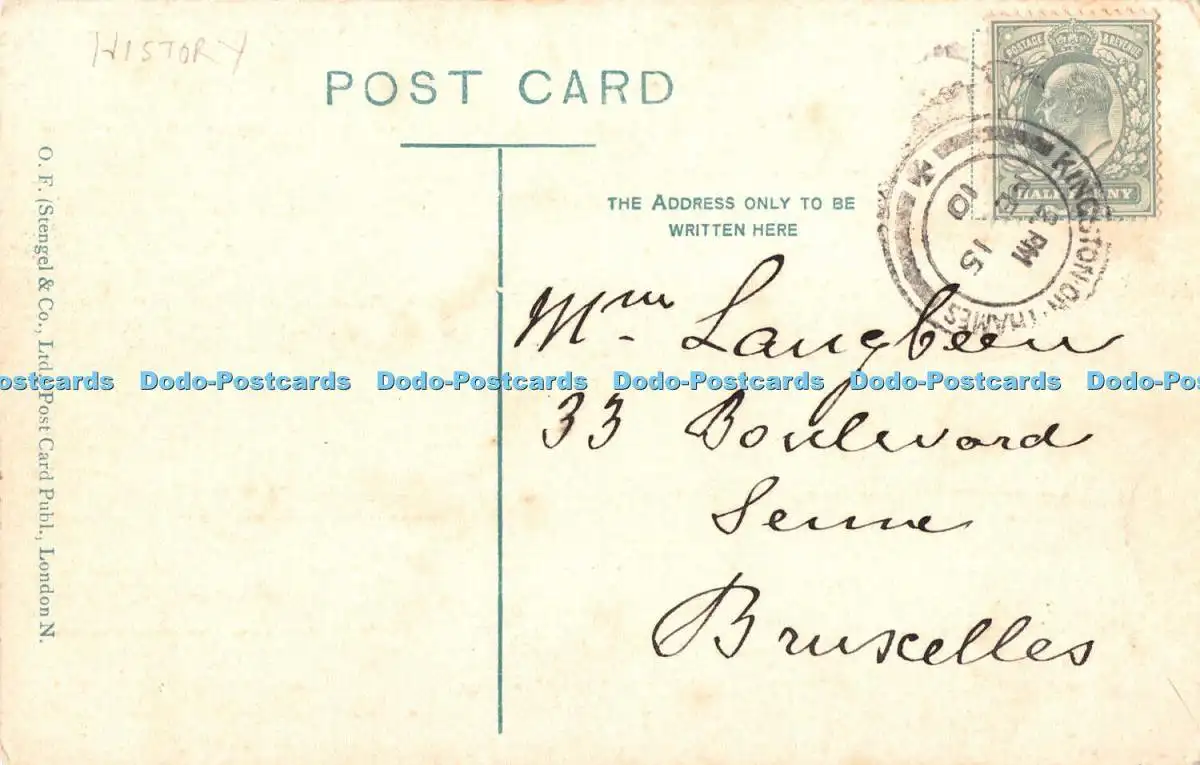 HISTORY
POST CARD
POSTAGE & REVENUE
HALFPENNY
KINGSTON ON THAMES
PM
15
10
THE ADDRESS ONLY TO BE
WRITTEN HERE
Mme Langbeen
33 Boulevard
Senne
Bruxelles
O. F. (Stengel & Co., Ltd.) Post Card Publ., London N.
Dodo-Postcards Dodo-Postcards Dodo-Postcards Dodo-Postcards